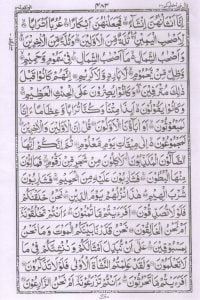 ۴۸۳
اِنَّاۤ اَنْشَاْنٰهُنَّ اِنْشَآءً فَجَعَلْنٰهُنَّ اَبْكَارًا عُرُبًا اَتْرَابًا
لِّاَصْحٰبِ الْيَمِيْنِ ثُلَّةٌ مِّنَ الْاَوَّلِيْنَ وَثُلَّةٌ مِّنَ الْاٰخِرِيْنَ
وَاَصْحٰبُ الشِّمَالِ مَاۤ اَصْحٰبُ الشِّمَالِ فِيْ سَمُوْمٍ وَّحَمِيْمٍ
وَّظِلٍّ مِّنْ يَّحْمُوْمٍ لَّا بَارِدٍ وَّلَا كَرِيْمٍ اِنَّهُمْ كَانُوْا قَبْلَ
ذٰلِكَ مُتْرَفِيْنَ وَكَانُوْا يُصِرُّوْنَ عَلَى الْحِنْثِ الْعَظِيْمِ وَكَانُوْا
يَقُوْلُوْنَ اَئِذَا مِتْنَا وَكُنَّا تُرَابًا وَّعِظَامًا ءَاِنَّا
لَمَبْعُوْثُوْنَ اَوَاٰبَآؤُنَا الْاَوَّلُوْنَ قُلْ اِنَّ الْاَوَّلِيْنَ وَالْاٰخِرِيْنَ
لَمَجْمُوْعُوْنَ اِلٰى مِيْقَاتِ يَوْمٍ مَّعْلُوْمٍ ثُمَّ اِنَّكُمْ اَيُّهَا
الضَّآلُّوْنَ الْمُكَذِّبُوْنَ لَاٰكِلُوْنَ مِنْ شَجَرٍ مِّنْ زَقُّوْمٍ فَمَالِئُوْنَ
مِنْهَا الْبُطُوْنَ فَشٰرِبُوْنَ عَلَيْهِ مِنَ الْحَمِيْمِ فَشٰرِبُوْنَ
شُرْبَ الْهِيْمِ هٰذَا نُزُلُهُمْ يَوْمَ الدِّيْنِ نَحْنُ خَلَقْنٰكُمْ
فَلَوْلَا تُصَدِّقُوْنَ اَفَرَءَيْتُمْ مَّا تُمْنُوْنَ ءَاَنْتُمْ تَخْلُقُوْنَهٗ
اَمْ نَحْنُ الْخٰلِقُوْنَ نَحْنُ قَدَّرْنَا بَيْنَكُمُ الْمَوْتَ وَمَا نَحْنُ
بِمَسْبُوْقِيْنَ عَلٰۤى اَنْ نُّبَدِّلَ اَمْثَالَكُمْ وَنُنْشِئَكُمْ فِيْ مَا
لَا تَعْلَمُوْنَ وَلَقَدْ عَلِمْتُمُ النَّشْاَةَ الْاُوْلٰى فَلَوْلَا تَذَكَّرُوْنَ
اَفَرَءَيْتُمْ مَّا تَحْرُثُوْنَ ءَاَنْتُمْ تَزْرَعُوْنَهٗۤ اَمْ نَحْنُ الزّٰرِعُوْنَ